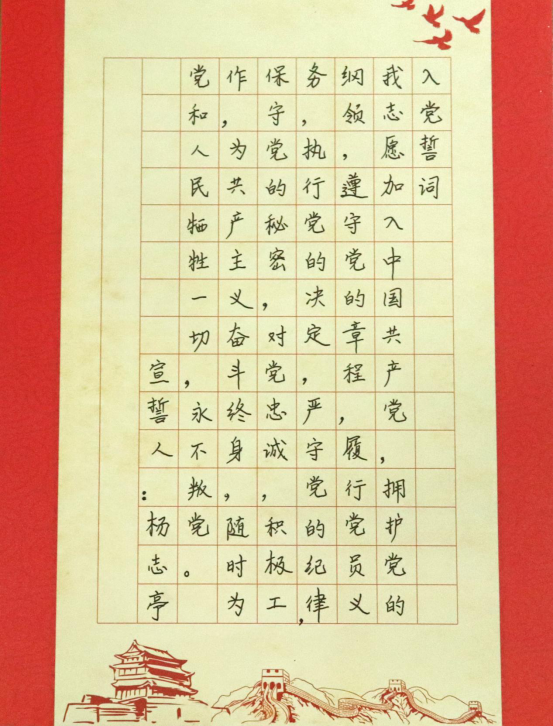 入党誓词
我志愿加入中国共产党，拥护党的
纲领，遵守党的章程，履行党员义
务，执行党的决定，严守党的纪律，
保守党的秘密，对党忠诚，积极工
作，为共产主义奋斗终身，随时为
党和人民牺牲一切，永不叛党。
宣誓人：杨志亭